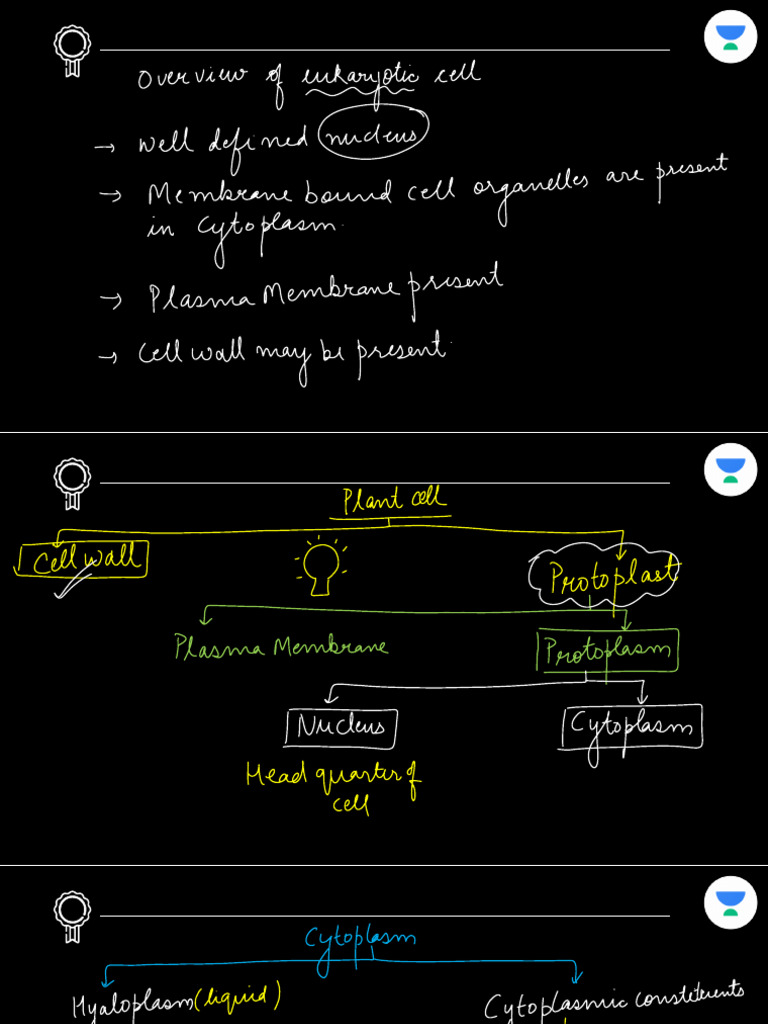 Overview of eukaryotic cell
→ Well defined nucleus
→ Membrane bound cell organelles are present
in cytoplasm.
→ Plasma Membrane present
→ Cell wall may be present.
Plant cell
Cell wall
Protoplast
Plasma Membrane
Protoplasm
Nucleus
Cytoplasm
Head quarter of
cell
Cytoplasm
Hyaloplasm (liquid)
Cytoplasmic constetuents